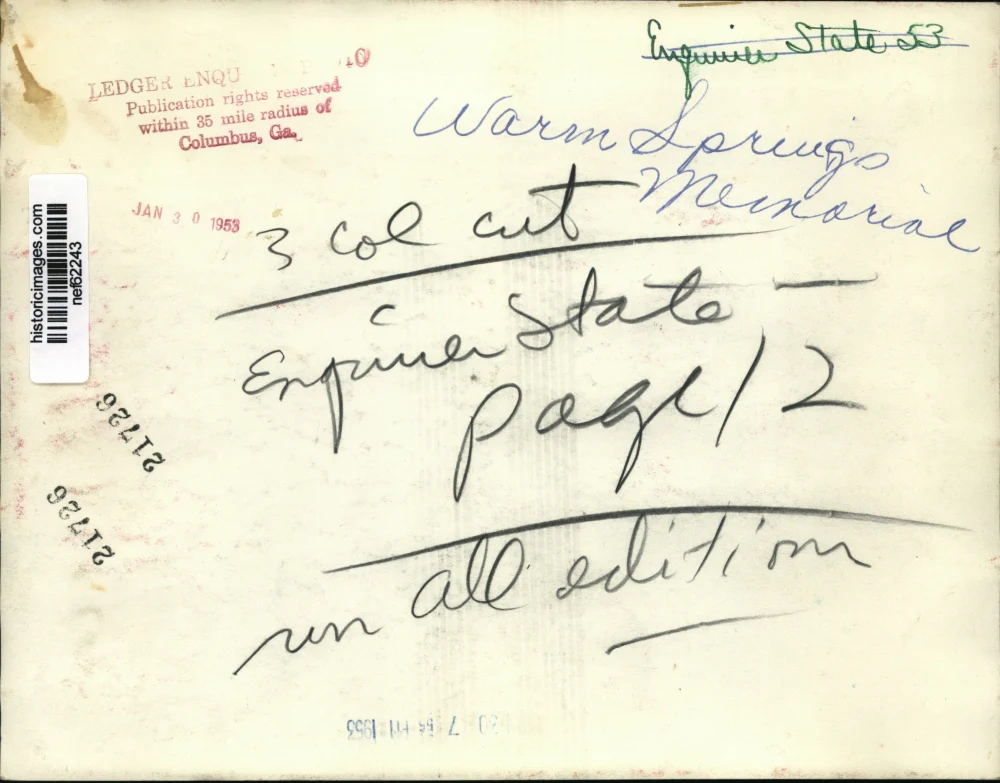 Enquirer State 53
LEDGER ENQU
Publication rights reserved
within 35 mile radius of
Columbus, Ga.
Warm Springs
Memorial
JAN 30 1953
3 col cut
Enquirer State
page 12
run all edition
historicimages.com
nef62243
21726
21726
7 54 PM 1953